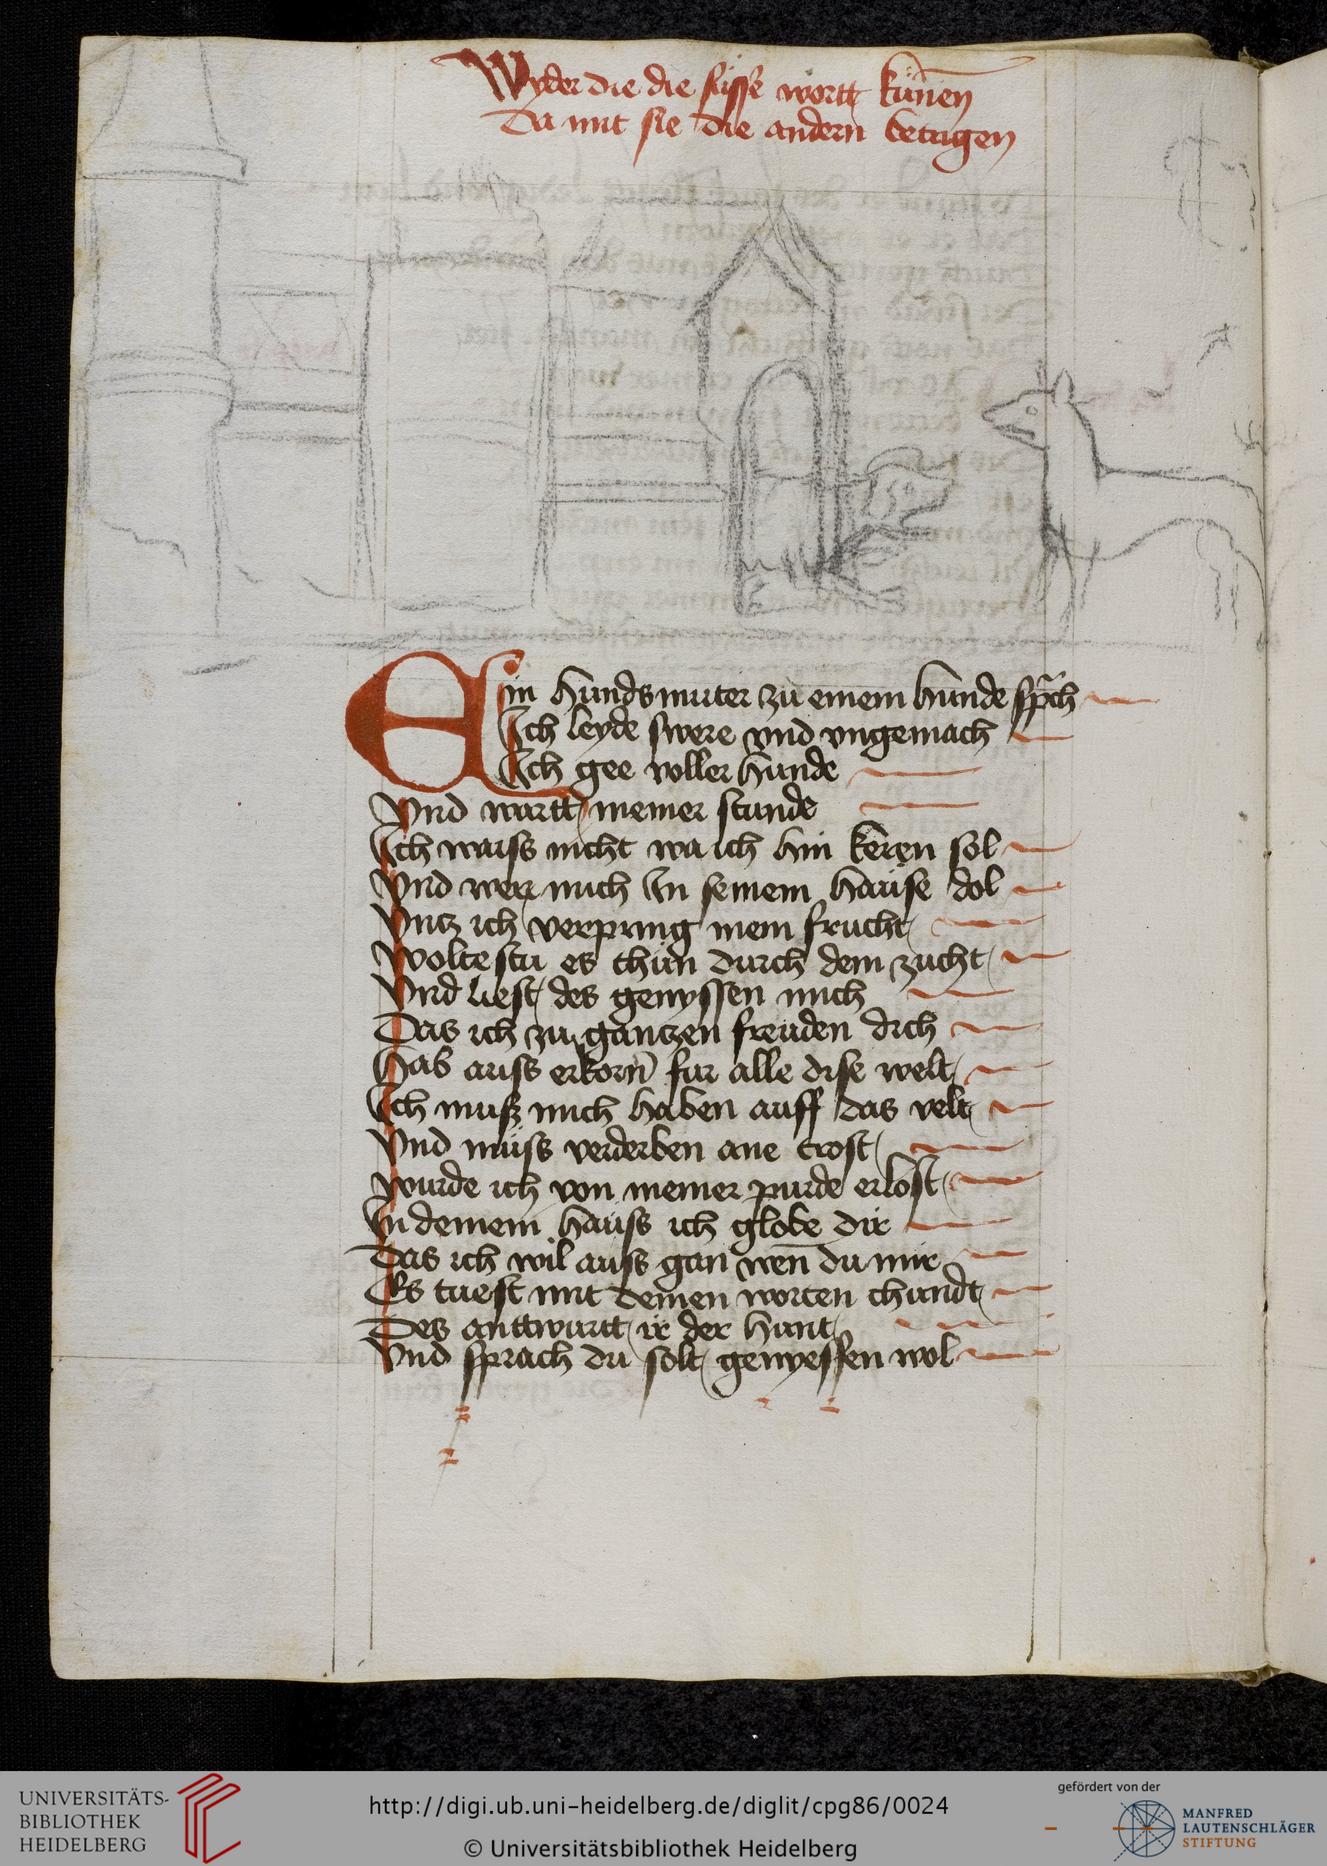 Wyder die die süsse wortt künnen
Da mit sie die andern betrigen
Ein hunds muter zu einem hunde sprach
Ich leyde swere vnd vngemach
Ich gee voller hunde
Vnd wartt meiner stunde
Ich waiss nicht wa ich hin keren sol
Vnd wer mich In seinem hause dol
Vntz ich verpring mein frucht
Woltestu es thun durch dein zucht
Vnd liest des genyssen mich
Das ich zu gantzen freuden dich
Hab auss erkorn fur alle dise welt
Ich muß mich haben auff das velt
Vnd müss verderben ane trost
Wurde ich von meiner purde erlost
In deinem hauss ich globe dir
Das ich wil auss gan wen du mir
Es tuest mit deinen worten chundt
Des anttwurtt ir der hunt
Vnd sprach du solt genyessen wol
UNIVERSITÄTS-
BIBLIOTHEK
HEIDELBERG
http://digi.ub.uni-heidelberg.de/diglit/cpg86/0024
© Universitätsbibliothek Heidelberg
gefördert von der
MANFRED
LAUTENSCHLÄGER
STIFTUNG